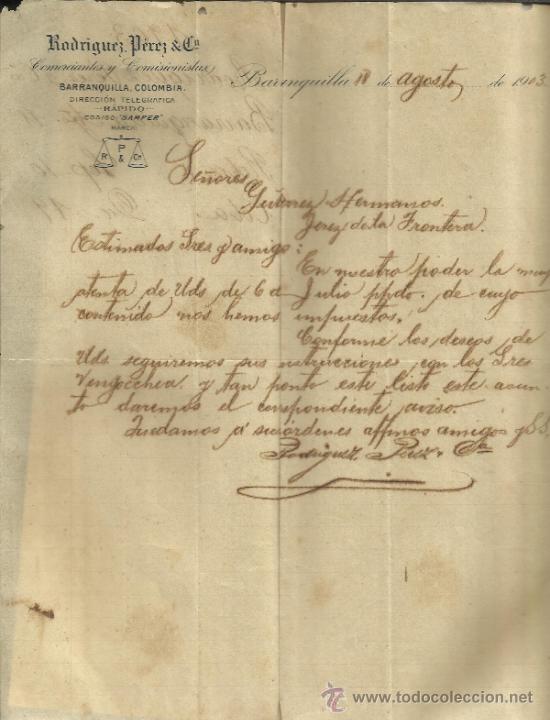 Rodriguez, Pérez & Cª
Comerciantes y Comisionistas
BARRANQUILLA, COLOMBIA.
DIRECCIÓN TELEGRAFICA
RÁPIDO
CODIGO "SAMPER"
MARCA:
R P & Cª
Barranquilla 18 de agosto de 1903.
Señores
Gutierrez Hermanos.
Jerez de la Frontera.
Estimados Sres y amigo:
En nuestro poder la muy
atenta de Uds de 6 d Julio ppdo. de cuyo
contenido nos hemos impuestos.
Conforme los deseos de
Uds seguiremos sus instrucciones con los Sres
Vengochea y tan ponto este listo este asun-
to daremos el correspondiente aviso.
Quedamos á sus órdenes affmos amigos y SS
Rodriguez Perez & Ca
www.todocoleccion.net